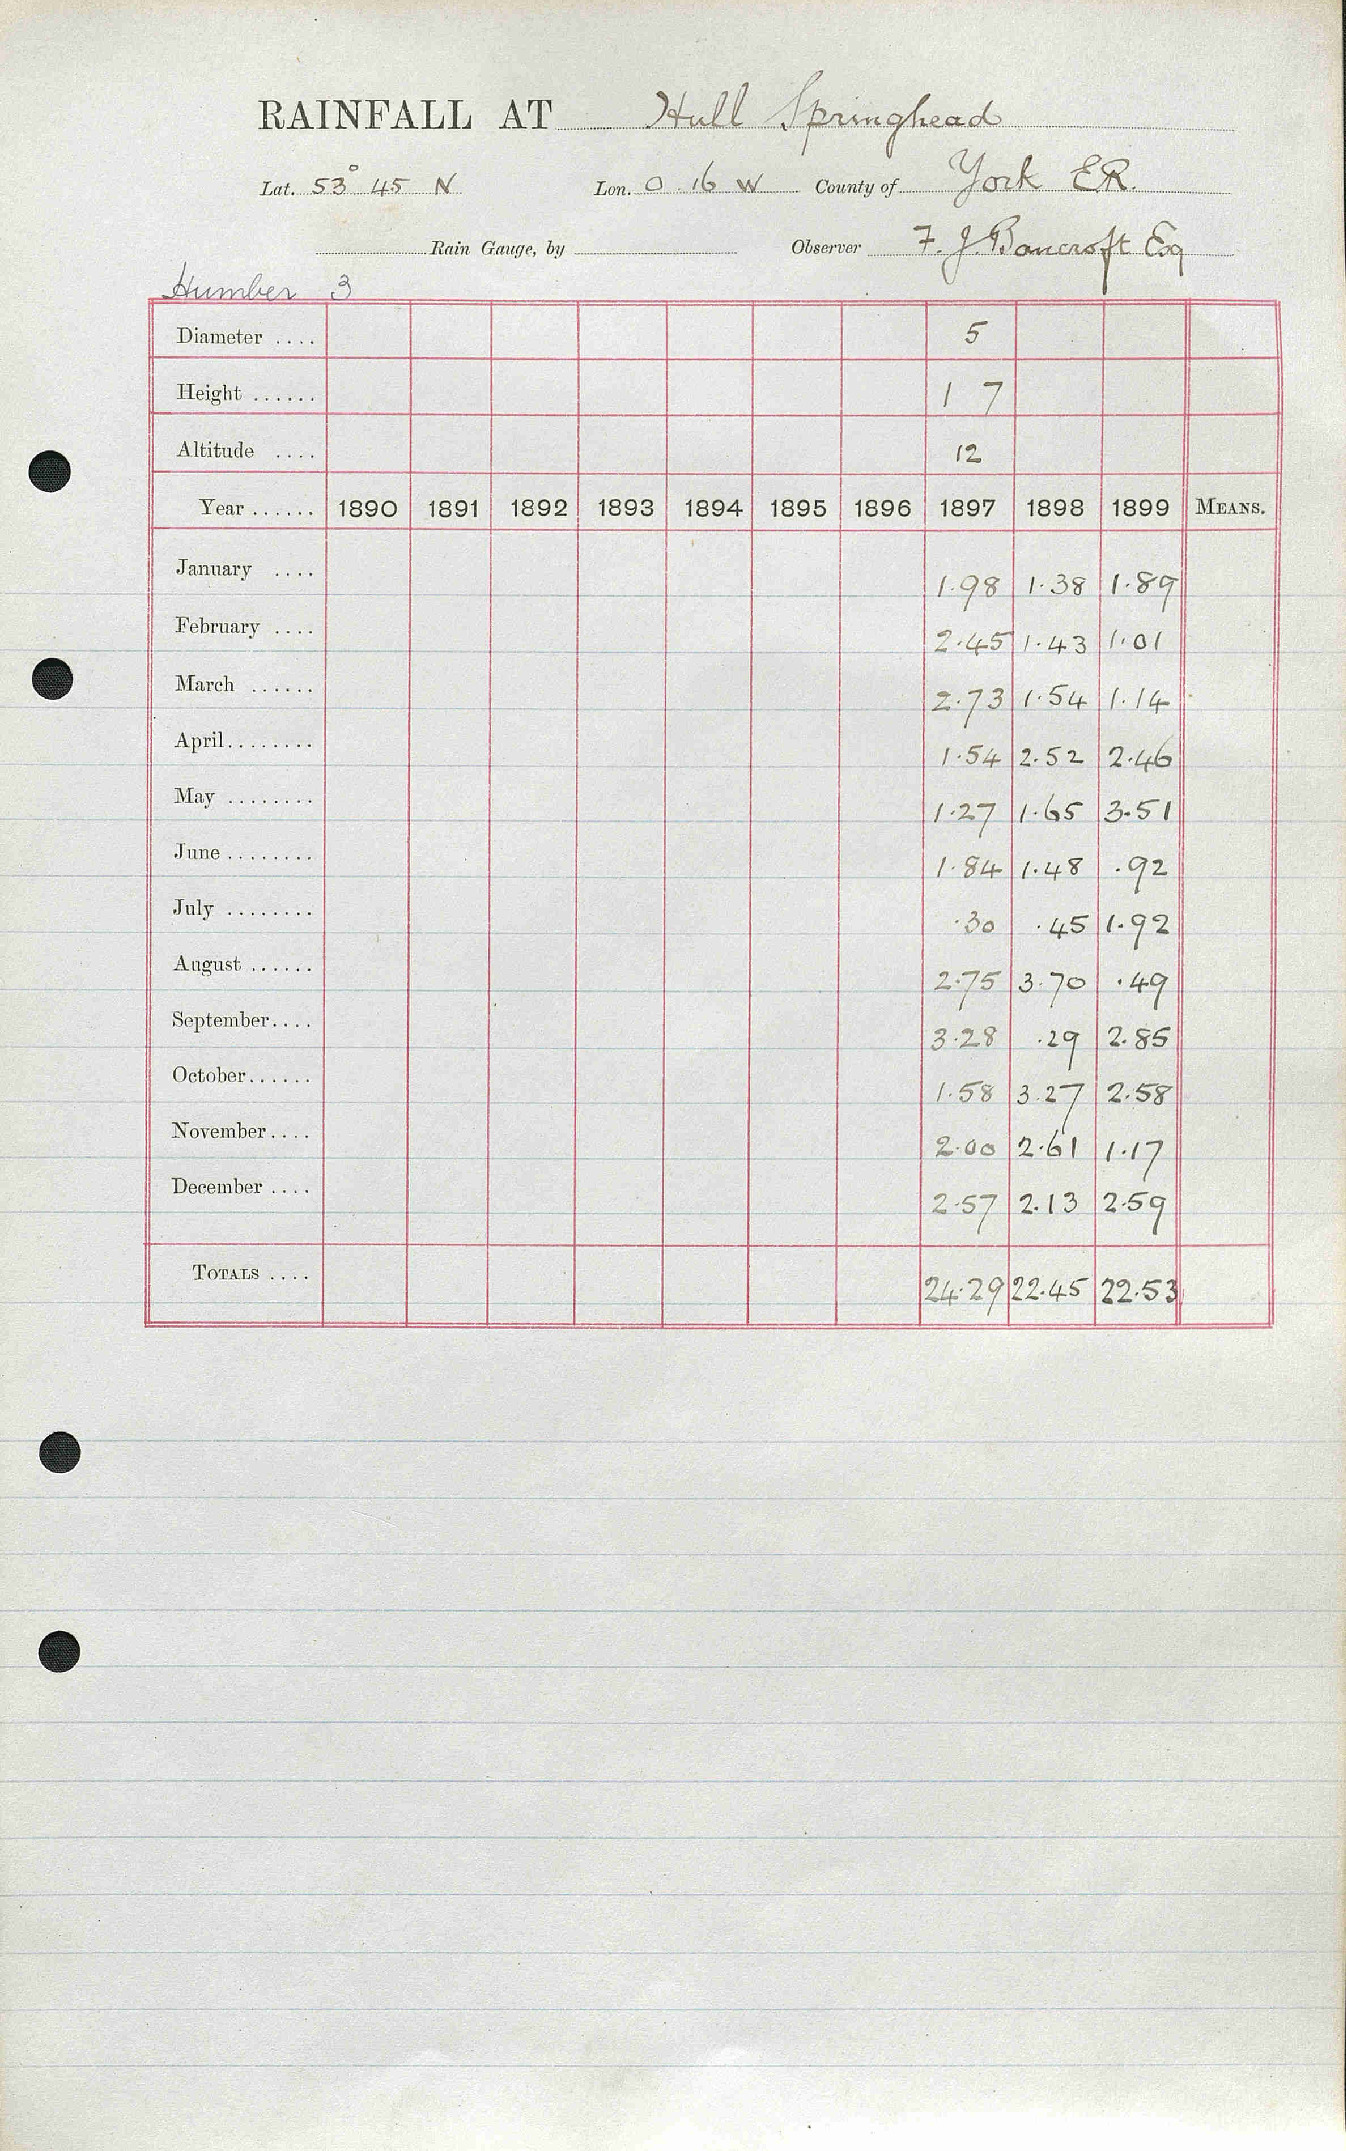 RAINFALL AT Hull Springhead
Lat. 53° 45 N Lon. 0 . 16 W County of York ER.
Rain Gauge, by Observer F. J. Bancroft Esq
Humber 3
Diameter .... 5
Height ...... 1 7
Altitude .... 12
Year ...... 1890 1891 1892 1893 1894 1895 1896 1897 1898 1899 MEANS.
January .... 1.98 1.38 1.89
February .... 2.45 1.43 1.01
March ...... 2.73 1.54 1.14
April........ 1.54 2.52 2.46
May ........ 1.27 1.65 3.51
June ........ 1.84 1.48 .92
July ........ .30 .45 1.92
August ...... 2.75 3.70 .49
September.... 3.28 .29 2.85
October...... 1.58 3.27 2.58
November.... 2.00 2.61 1.17
December .... 2.57 2.13 2.59
TOTALS .... 24.29 22.45 22.53